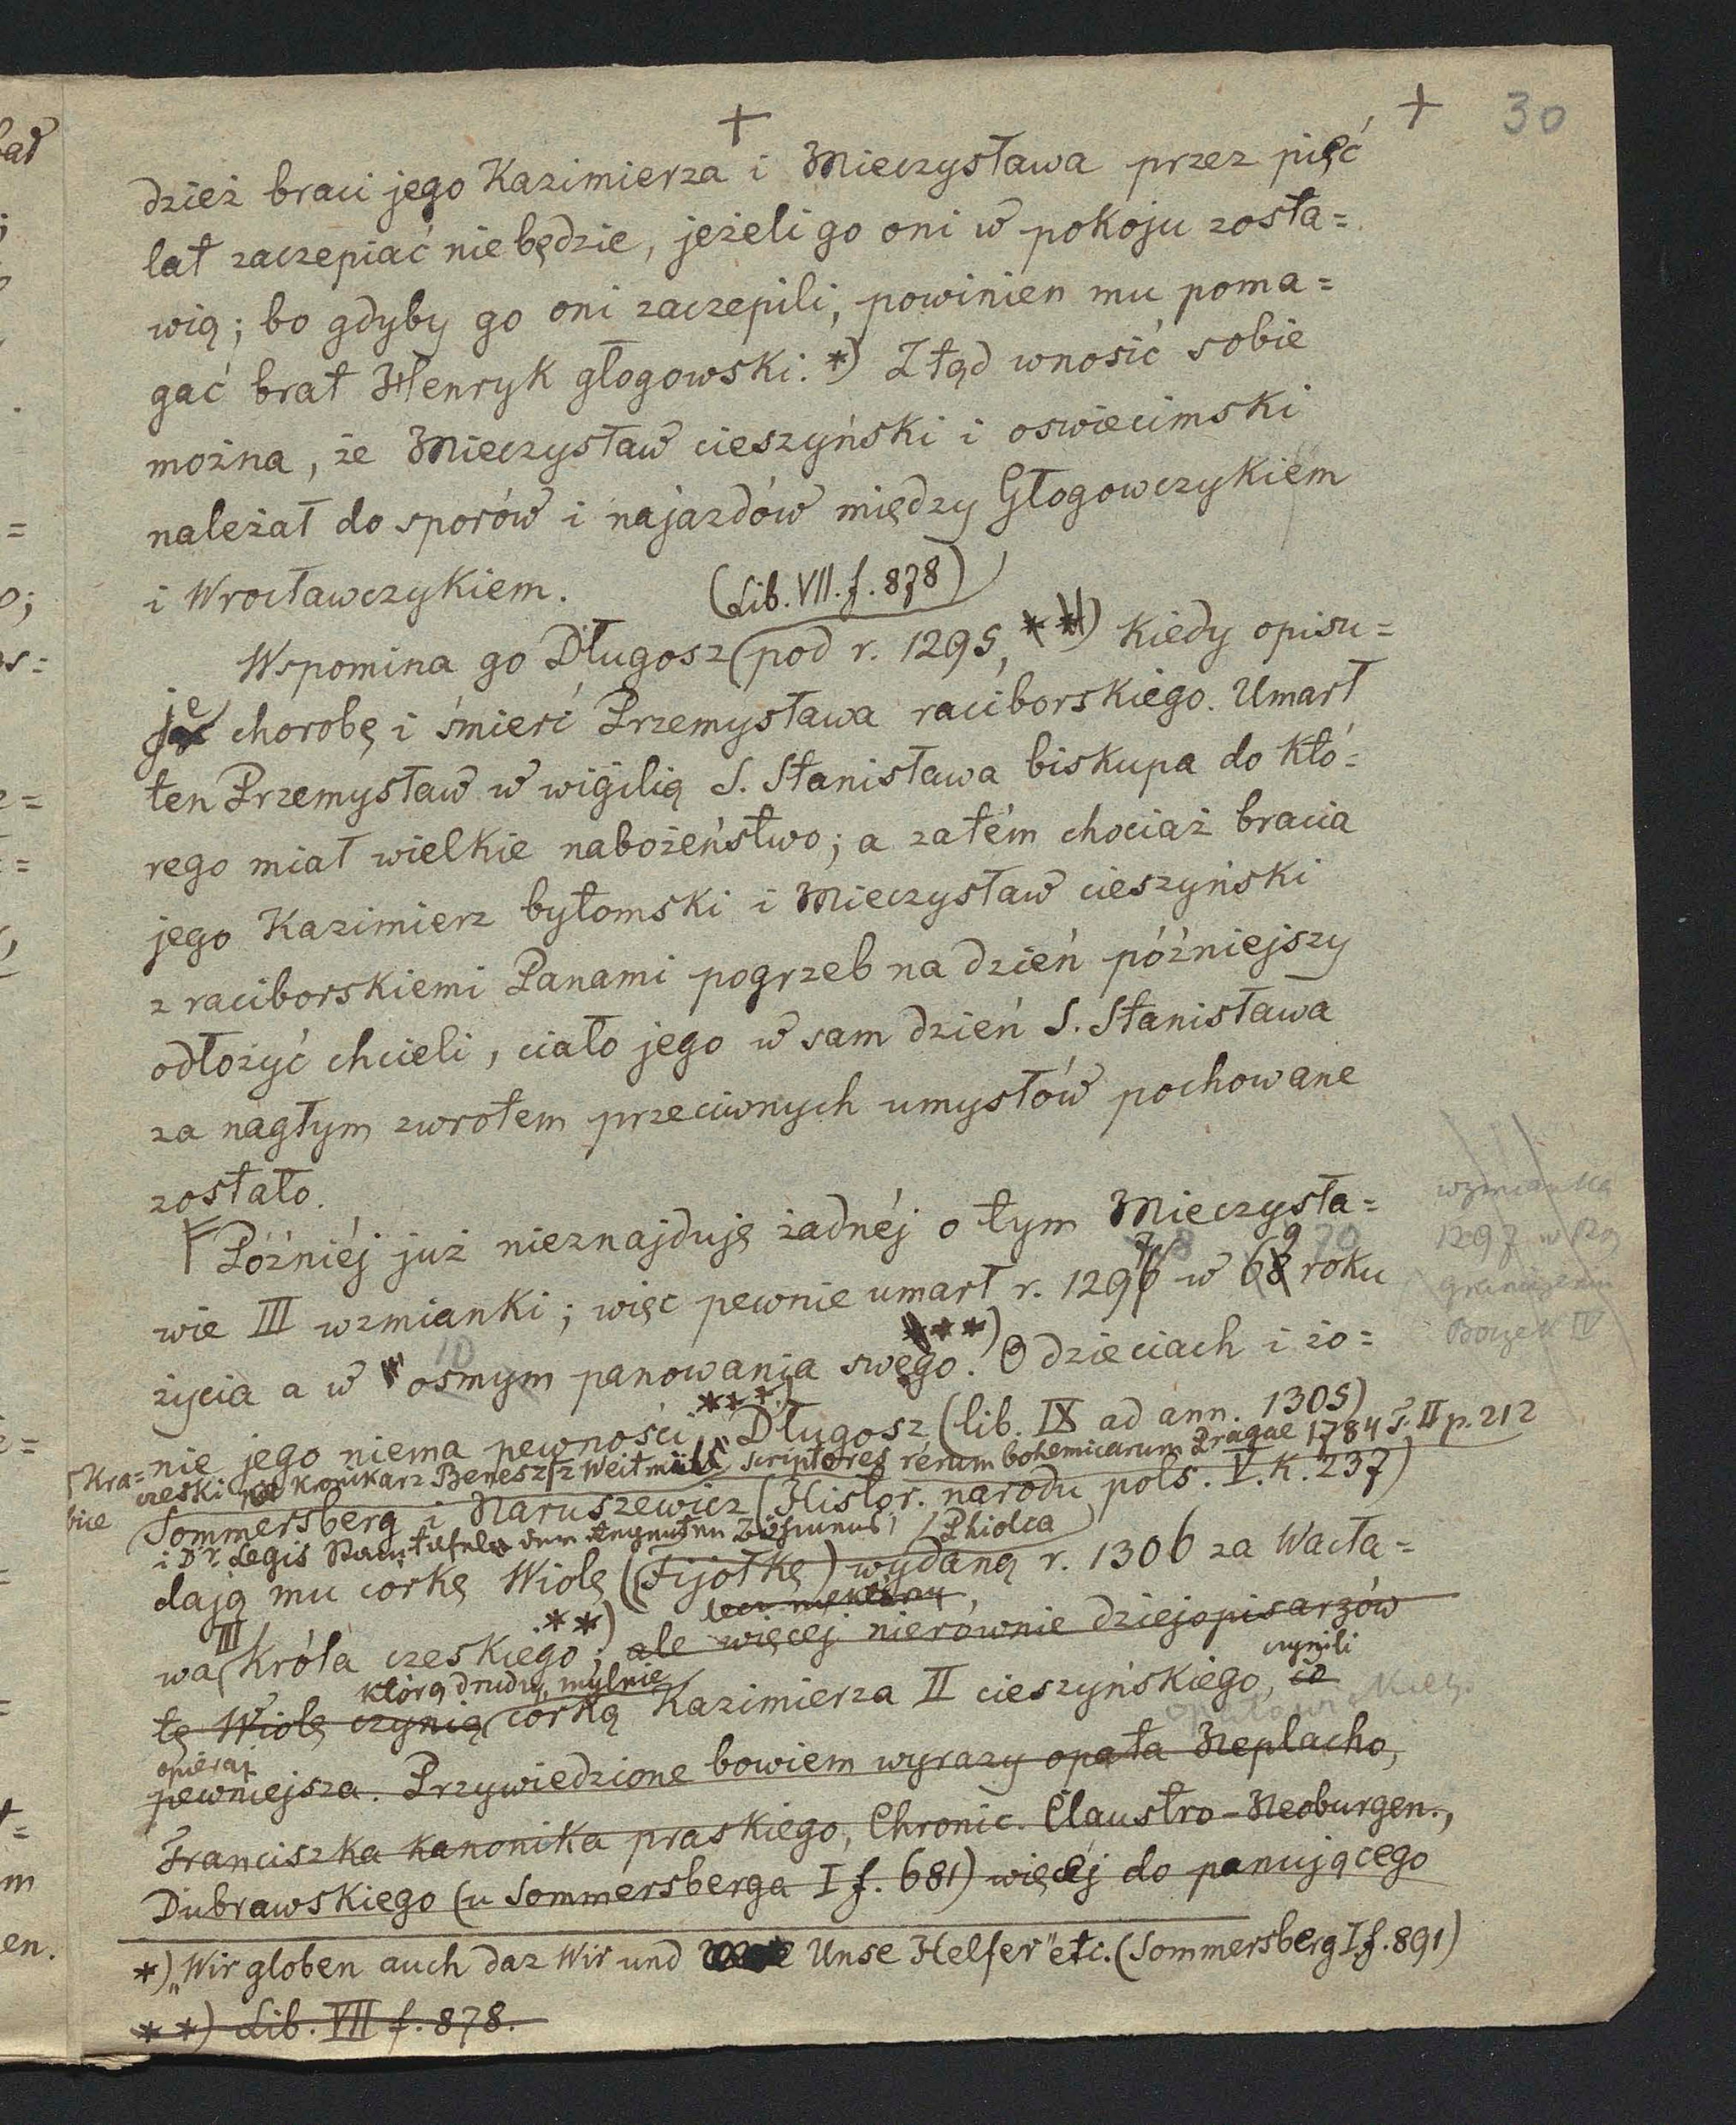 + + 30
dzież braci jego Kazimierza i Mieczysława przez pięć
lat zaczepiać niebędzie, jeżeli go oni w pokoju zosta=
wią; bo gdyby go oni zaczepili, powinien mu poma=
gać brat Henryk głogowski. *) Ztąd wnosić sobie
można, że Mieczysław cieszyński i oswiecimski
należał do sporów i najazdów między Głogowczykiem
i Wrocławczykiem.
(Lib. VII. f. 878)
Wspomina go Długosz (pod r. 1295, **) kiedy opisu=
je chorobę i śmierć Przemysława raciborskiego. Umarł
ten Przemysław w wigilią S. Stanisława biskupa do któ=
rego miał wielkie nabożeństwo; a zatém chociaż bracia
jego Kazimierz bytomski i Mieczysław cieszyński
z raciborskiemi Panami pogrzeb na dzień późniejszy
odłożyć chcieli, ciało jego w sam dzień S. Stanisława
za nagłym zwrotem przeciwnych umysłów pochowane
zostało.
Późniéj już nieznajduję żadnéj o tym Mieczysła=
wzmianka
1297 w
7 8 9 70
wie III wzmianki; więc pewnie umarł r. 1296 w 68 roku
Boczek IV
10 ***)
życia a w osmym panowania swego. O dzieciach i żo=
***)
nie jego niema pewności. Długosz (lib. IX ad ann. 1305)
czeski kronikarz Benesz z Weitmühl scriptores rerum bohemicarum Pragae 1784 T. II p. 212
Sommersberg i Naruszewicz (Histor. narodu pols. V. K. 237)
i Dr. Legis Stammtafeln der Regenten Böhmens, Phiolca
dają mu corkę Wiolę (Fijołkę) wydaną r. 1306 za Wacła=
III **)
wa króla czeskiego; ale więcej nierównie dziejopisarzów
którą drudzy mylnie czynili
tę Wiolę czynią corką Kazimierza II cieszyńskiego, co
pewniejsza. Przywiedzione bowiem wyrazy opata Neplacho,
Franciszka kanonika praskiego, Chronic. Claustro-Neoburgen.,
Dubrawskiego (u Sommersberga I f. 681) więcéj do panującego
*) „Wir globen auch daz Wir und Unse Helfer" etc. (Sommersberg I f. 891)
**) Lib. VII f. 878.